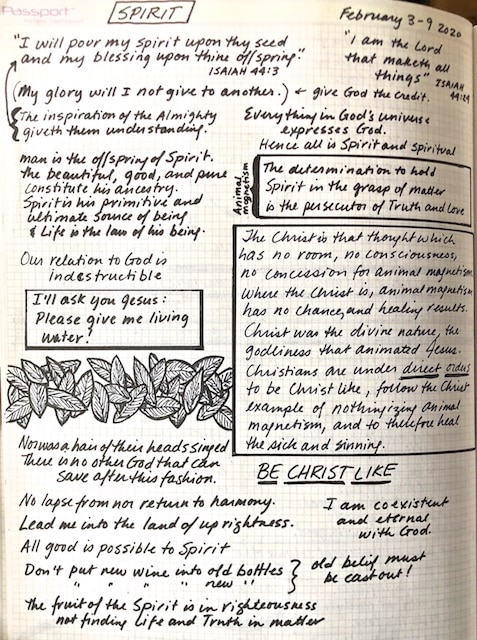 Passport
SPIRIT
February 3-9 2020
"I will pour my spirit upon thy seed
and my blessing upon thine offspring"
ISAIAH 44:3
"I am the Lord
that maketh all
things" ISAIAH
44:24
(My glory will I not give to another.) ← give God the credit.
The inspiration of the Almighty
giveth them understanding.
Everything in God's universe
expresses God.
Hence all is Spirit and spiritual
man is the offspring of Spirit.
the beautiful, good, and pure
constitute his ancestry.
Spirit is his primitive and
ultimate source of being
& Life is the law of his being.
Animal
magnetism
The determination to hold
Spirit in the grasp of matter
is the persecutor of Truth and Love
Our relation to God is
indestructible
I'll ask you Jesus:
Please give me living
water!
The Christ is that thought which
has no room, no consciousness,
no concession for animal magnetism
where the Christ is, animal magnetism
has no chance, and healing results.
Christ was the divine nature, the
godliness that animated Jesus.
Christians are under direct orders
to be Christ like, follow the Christ
example of nothingizing animal
magnetism, and to therefore heal
the sick and sinning.
BE CHRIST LIKE
Nor was a hair of their heads singed
There is no other God that can
save after this fashion.
No lapse from nor return to harmony.
Lead me into the land of uprightness.
I am coexistent
and eternal
with God.
All good is possible to Spirit
Don't put new wine into old bottles
" " " " new "
old belief must
be cast out!
the fruit of the Spirit is in righteousness
not finding Life and Truth in matter